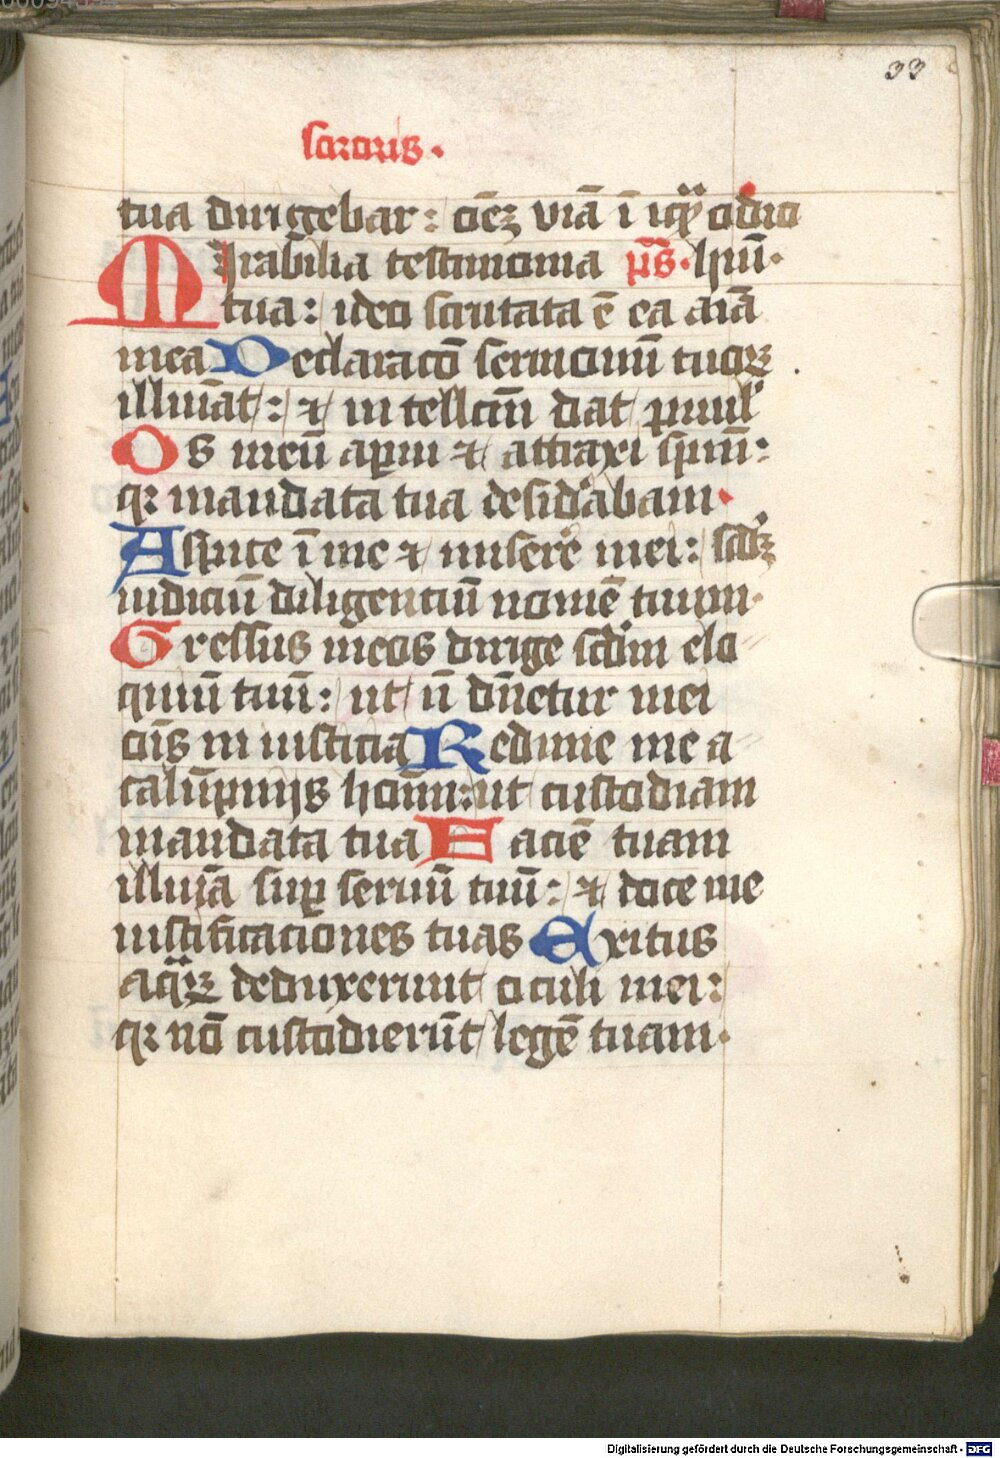 33
sororis.
tua dirigebar: oēz viā ī iq̄ odio
Mirabilia testimonia p̄s. hūī.
tua: ideo scrutata ē ea aīā
mea Declaracō sermonū tuoꝝ
illuīāt: ⁊ intellcm̄ dat ꝑuul
Os meū aperui ⁊ attraxi spm̄:
qꝛ mandata tua desidabam.
Aspice ī me ⁊ miserē mei: scdꝫ
iudiciū diligenciū nomē tuum.
Gressus meos dirige scdm elo
quiū tuū: ut n̄ dn̄etur mei
oīs iniusticia Redime me a
calūpniis homī: ut custodiam
mandata tua Faciē tuam
illuīā suꝑ seruū tuū: ⁊ doce me
iustificaciones tuas Exitus
aqꝝ deduxerunt oculi mei:
qꝛ nō custodierūt legē tuam.
Digitalisierung gefördert durch die Deutsche Forschungsgemeinschaft - DFG